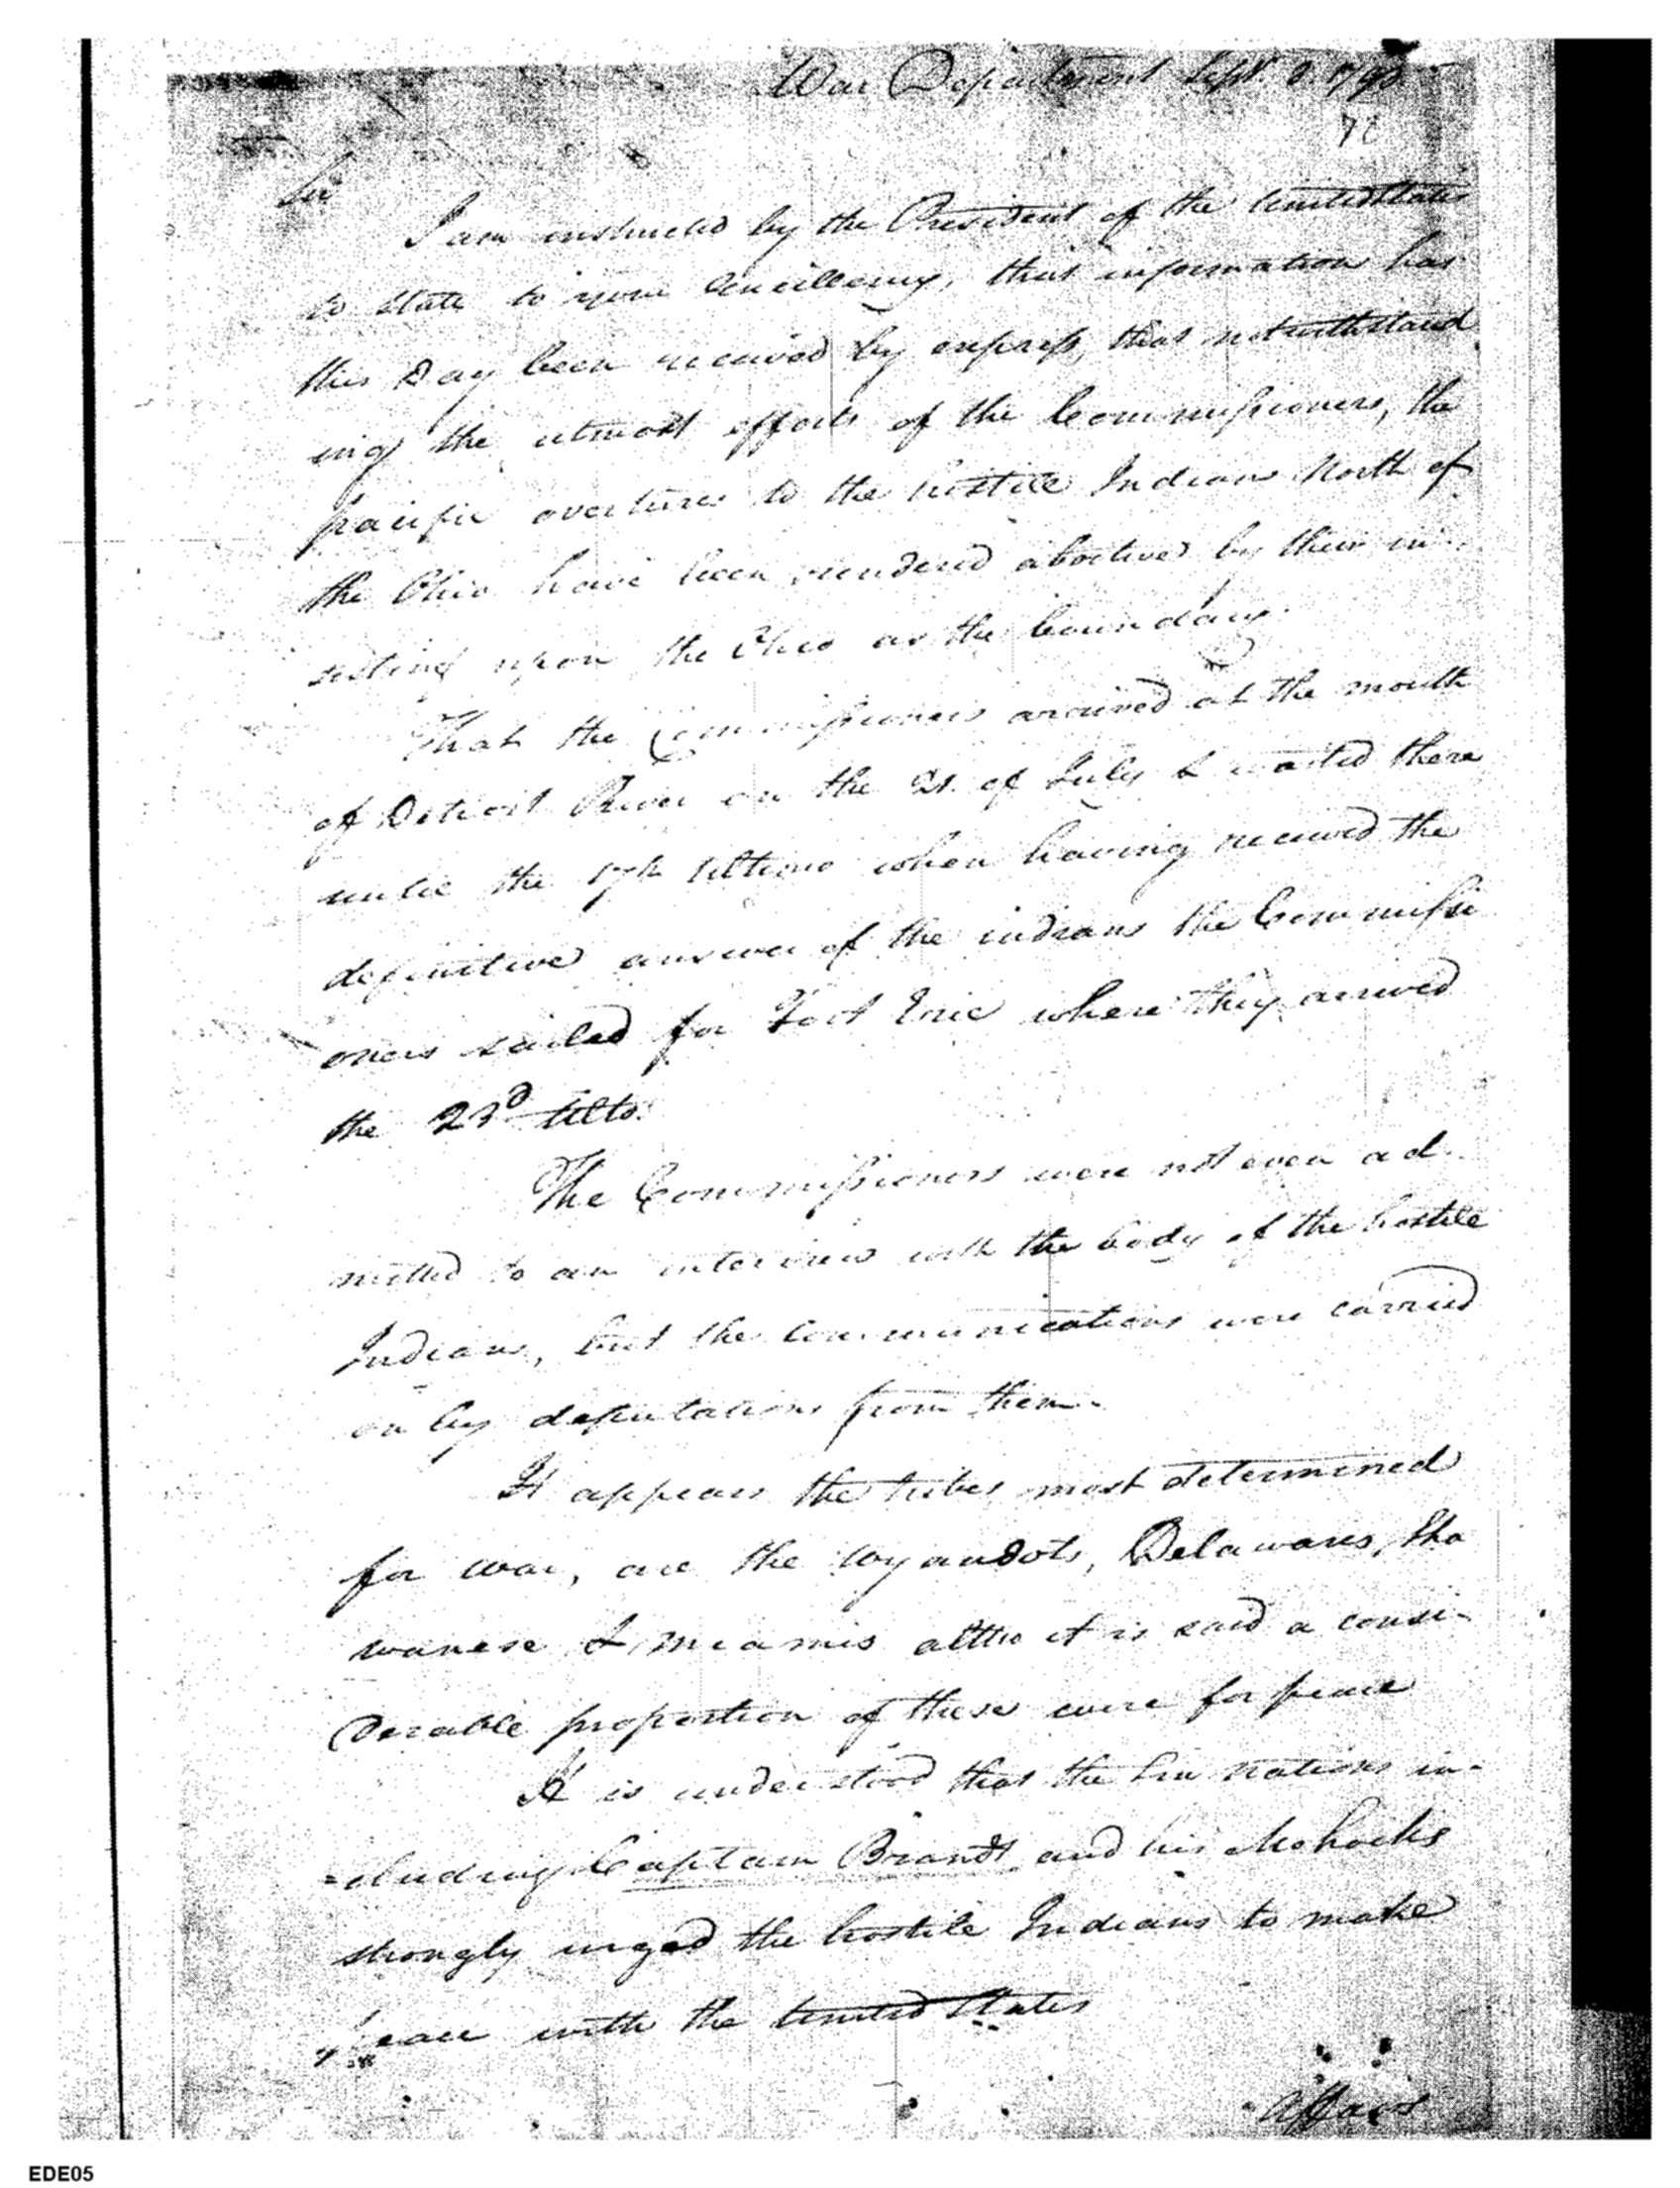 War Department Sept. 3. 1793
Sir
I am instructed by the President of the United States
to state to your Excellency, that information has
this Day been received by express, that notwithstand
ing the utmost efforts of the Commissioners, the
pacific overtures to the hostile Indians North of
the Ohio have been rendered abortive by their in
sisting upon the Ohio as the boundary.
That the Commissioners arrived at the mouth
of Detroit River on the 21. of July & waited there
untie the 17th Ultimo when having received the
definitive answer of the indians the Commissi
oners sailed for Fort Erie where they arrived
the 23d Ulto.
The Commissioners were not even ad-
mitted to an interview with the body of the hostile
Indians, but the communications were carried
on by deputations from them.
It appears the tribes most determined
for war, are the Wyandots, Delawares, Sha
wanese & Miamis altho it is said a consi-
derable proportion of these were for peace
It is understood that the Six nations in-
=cluding Captain Brandt and his Mohocks
strongly urged the hostile Indians to make
peace with the United States
Affairs
EDE05